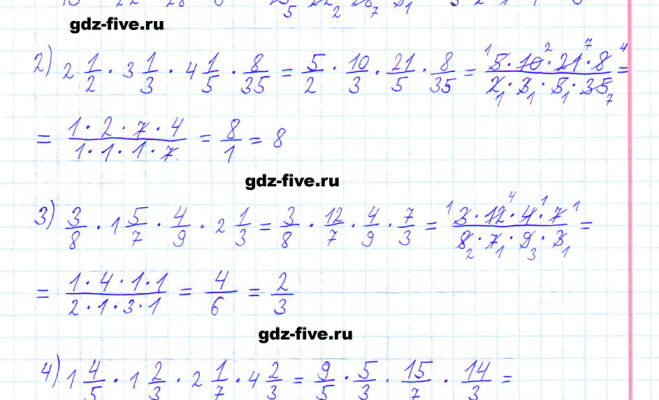 gdz-five.ru
2) 2 1/2 · 3 1/3 · 4 1/5 · 8/35 = 5/2 · 10/3 · 21/5 · 8/35 = (5 · 10 · 21 · 8)/(2 · 3 · 5 · 35) =
= (1 · 2 · 7 · 4)/(1 · 1 · 1 · 7) = 8/1 = 8
gdz-five.ru
3) 3/8 · 1 5/7 · 4/9 · 2 1/3 = 3/8 · 12/7 · 4/9 · 7/3 = (3 · 12 · 4 · 7)/(8 · 7 · 9 · 3) =
= (1 · 4 · 1 · 1)/(2 · 1 · 3 · 1) = 4/6 = 2/3
gdz-five.ru
4) 1 4/5 · 1 2/3 · 2 1/7 · 4 2/3 = 9/5 · 5/3 · 15/7 · 14/3 =